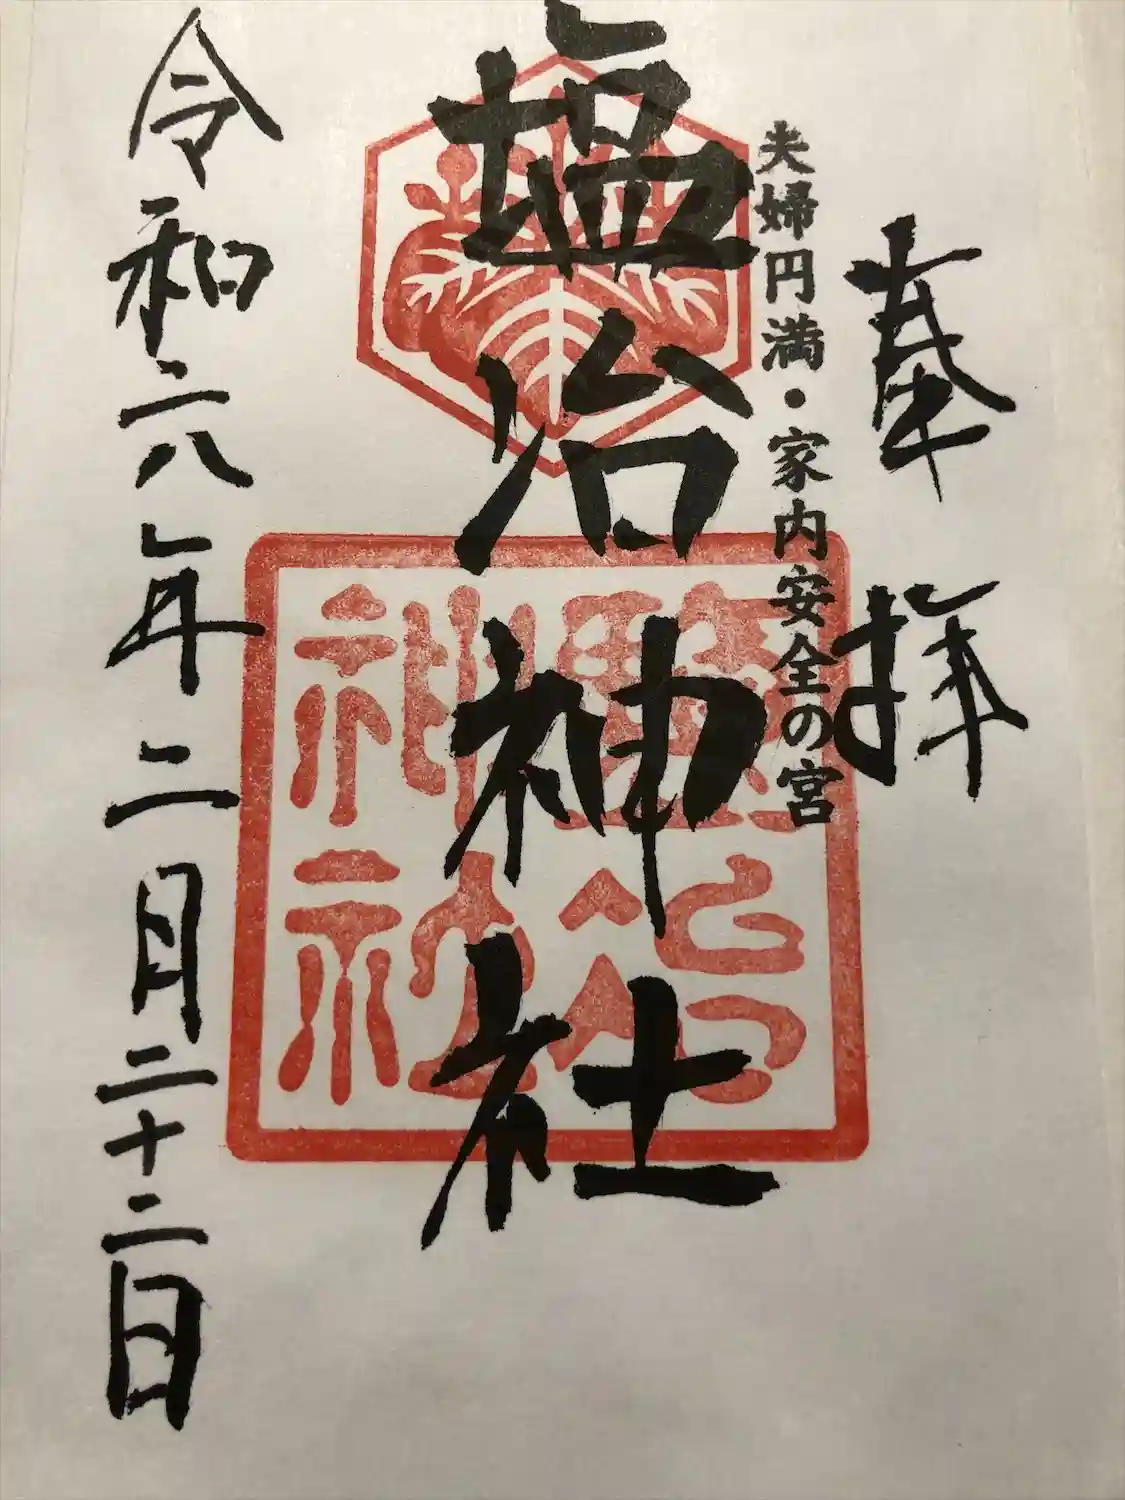 奉拝
夫婦円満・家内安全の宮
塩冶神社
鹽冶
神社
令和六年二月二十二日